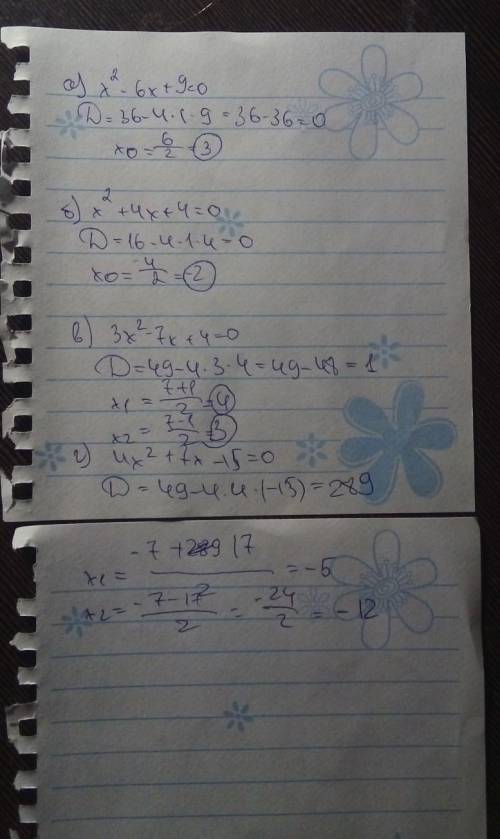 а) x² - 6x + 9 = 0
D = 36 - 4 · 1 · 9 = 36 - 36 = 0
x0 = 6/2 = 3
б) x² + 4x + 4 = 0
D = 16 - 4 · 1 · 4 = 0
x0 = -4/2 = -2
в) 3x² - 7x + 4 = 0
D = 49 - 4 · 3 · 4 = 49 - 48 = 1
x1 = 7+1/2 = 4
x2 = 7-1/2 = 3
г) 4x² + 7x - 15 = 0
D = 49 - 4 · 4 · (-15) = 289
x1 = -7 + 17 / = -5
x2 = -7-17/2 = -24/2 = -12